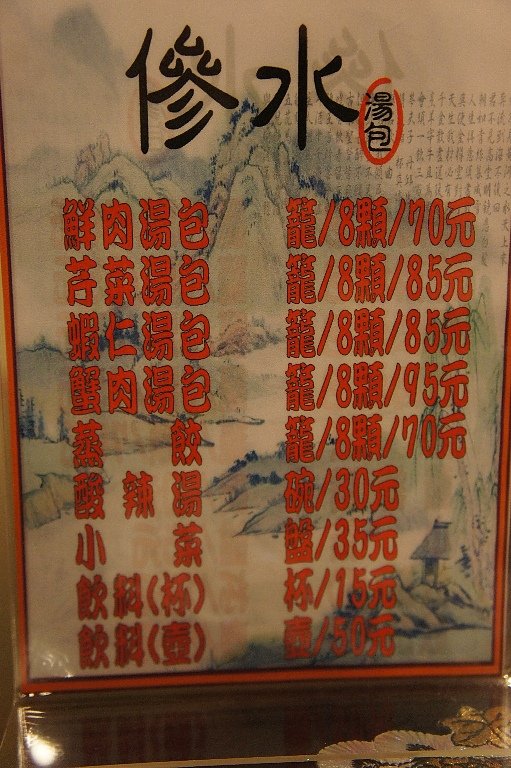 傪水
湯包
鮮肉湯包 籠/8顆/70元
芹菜湯包 籠/8顆/85元
蝦仁湯包 籠/8顆/85元
蟹肉湯包 籠/8顆/95元
蒸餃 籠/8顆/70元
酸辣湯 碗/30元
小菜 盤/35元
飲料(杯) 杯/15元
飲料(壺) 壺/50元